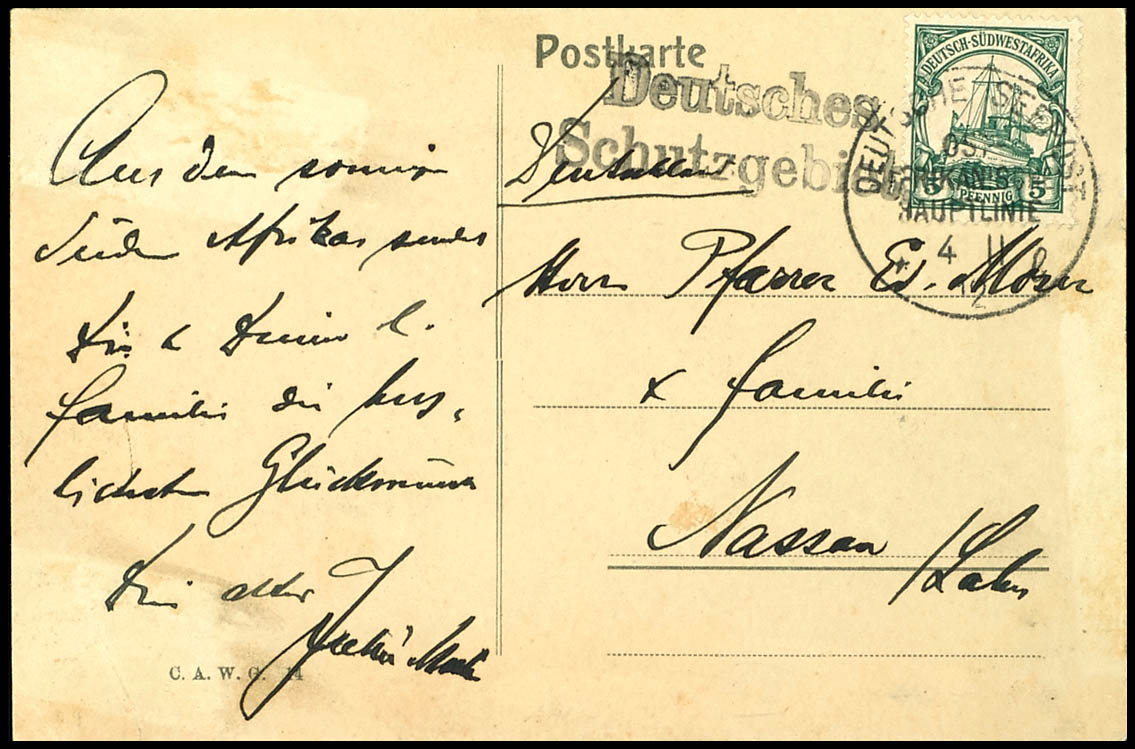 Postkarte
Deutsches
Schutzgebiet
DEUTSCH-SÜDWESTAFRIKA
5 PFENNIG 5
DEUTSCHE SEEPOST
OST
AFRIKANISCHE
HAUPTLINIE
4 11
Aus dem sonnigen
Süden Afrikas sendet
Dir & Deiner l.
Familie die herz-
lichsten Glückwünsche
Dein alter
C. A. W. G. 14
Deutschland
Herrn Pfarrer Ed. Moser
& Familie
Nassau /Lahn